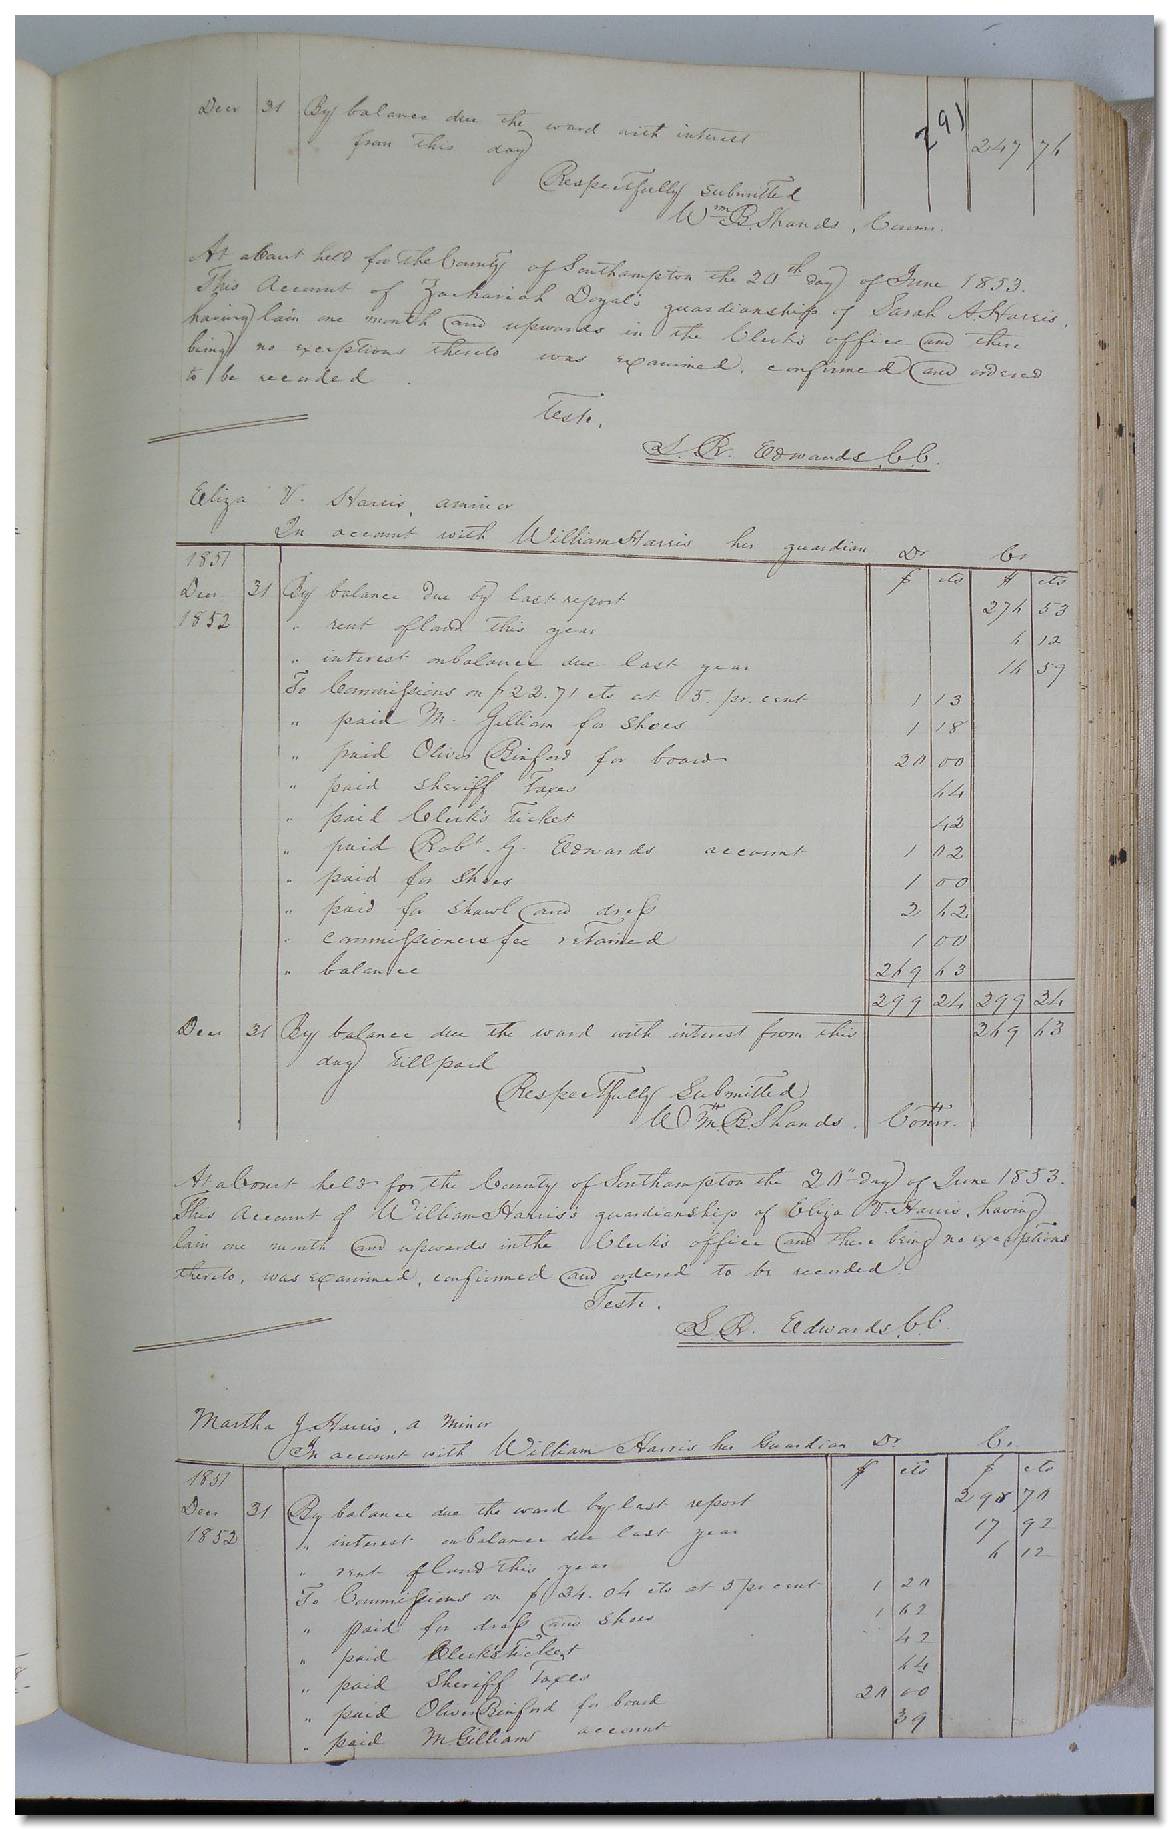 291
Decr 31 By balance due the ward with interest
from this day 247 76
Respectfully submitted
Wm B. Shands, Comr.
At a Court held for the County of Southampton the 20th day of June 1853.
This Account of Zachariah Doyal's guardianship of Sarah A Harris,
having lain one month and upwards in the Clerk's office and there
being no exceptions thereto was examined, confirmed and ordered
to be recorded.
Teste.
L. R. Edwards C.C.
Eliza V. Harris, a minor
In account with William Harris her guardian Dr Cr
1851 $ cts $ cts
Decr 31 By balance due by last report 276 53
1852 " rent of land this year 6 12
" interest on balance due last year 16 59
To Commissions on $22.71 cts at 5. pr. cent 1 13
" paid M. Gilliam for Shoes 1 18
" paid Oliver Binford for board 20 00
" paid Sheriff Taxes 64
" paid Clerk's Ticket 42
" paid Robt. G. Edwards account 1 62
" paid for Shoes 1 00
" paid for Shawl and dress 2 62
" commissioners fee retained 1 00
" balance 269 63
299 24 299 24
Decr 31 By balance due the ward with interest from this 269 63
day till paid
Respectfully Submitted
Wm B. Shands. Comr.
At a Court held for the County of Southampton the 20" day of June 1853.
This Account of William Harris's guardianship of Eliza V. Harris, having
lain one month and upwards in the Clerk's office and there being no exceptions
thereto, was examined, confirmed and ordered to be recorded.
Teste.
L R. Edwards C.C.
Martha J. Harris, a Minor
In account with William Harris her Guardian Dr. Cr
1851 $ cts $ cts
Decr 31 By balance due the ward by last report 298 70
1852 " interest on balance due last year 17 92
" rent of land this year 6 12
To Commissions on $24.04 cts at 5 pr cent 1 20
" paid for dress and Shoes 1 62
" paid Clerk's Ticket 42
" paid Sheriff Taxes 64
" paid Oliver Binford for board 20 00
" paid M Gilliam account 39